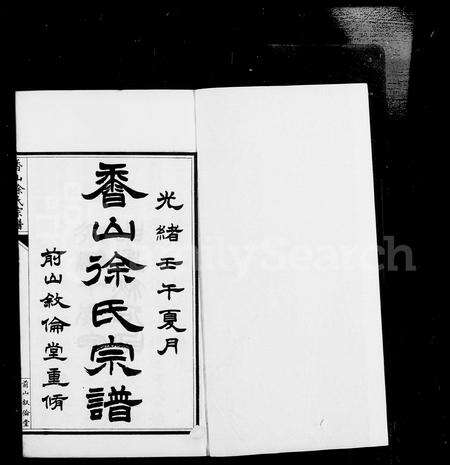 光緒壬午夏月
香山徐氏宗譜
前山敘倫堂重脩
香山徐氏宗譜
前山敘倫堂
FamilySearch